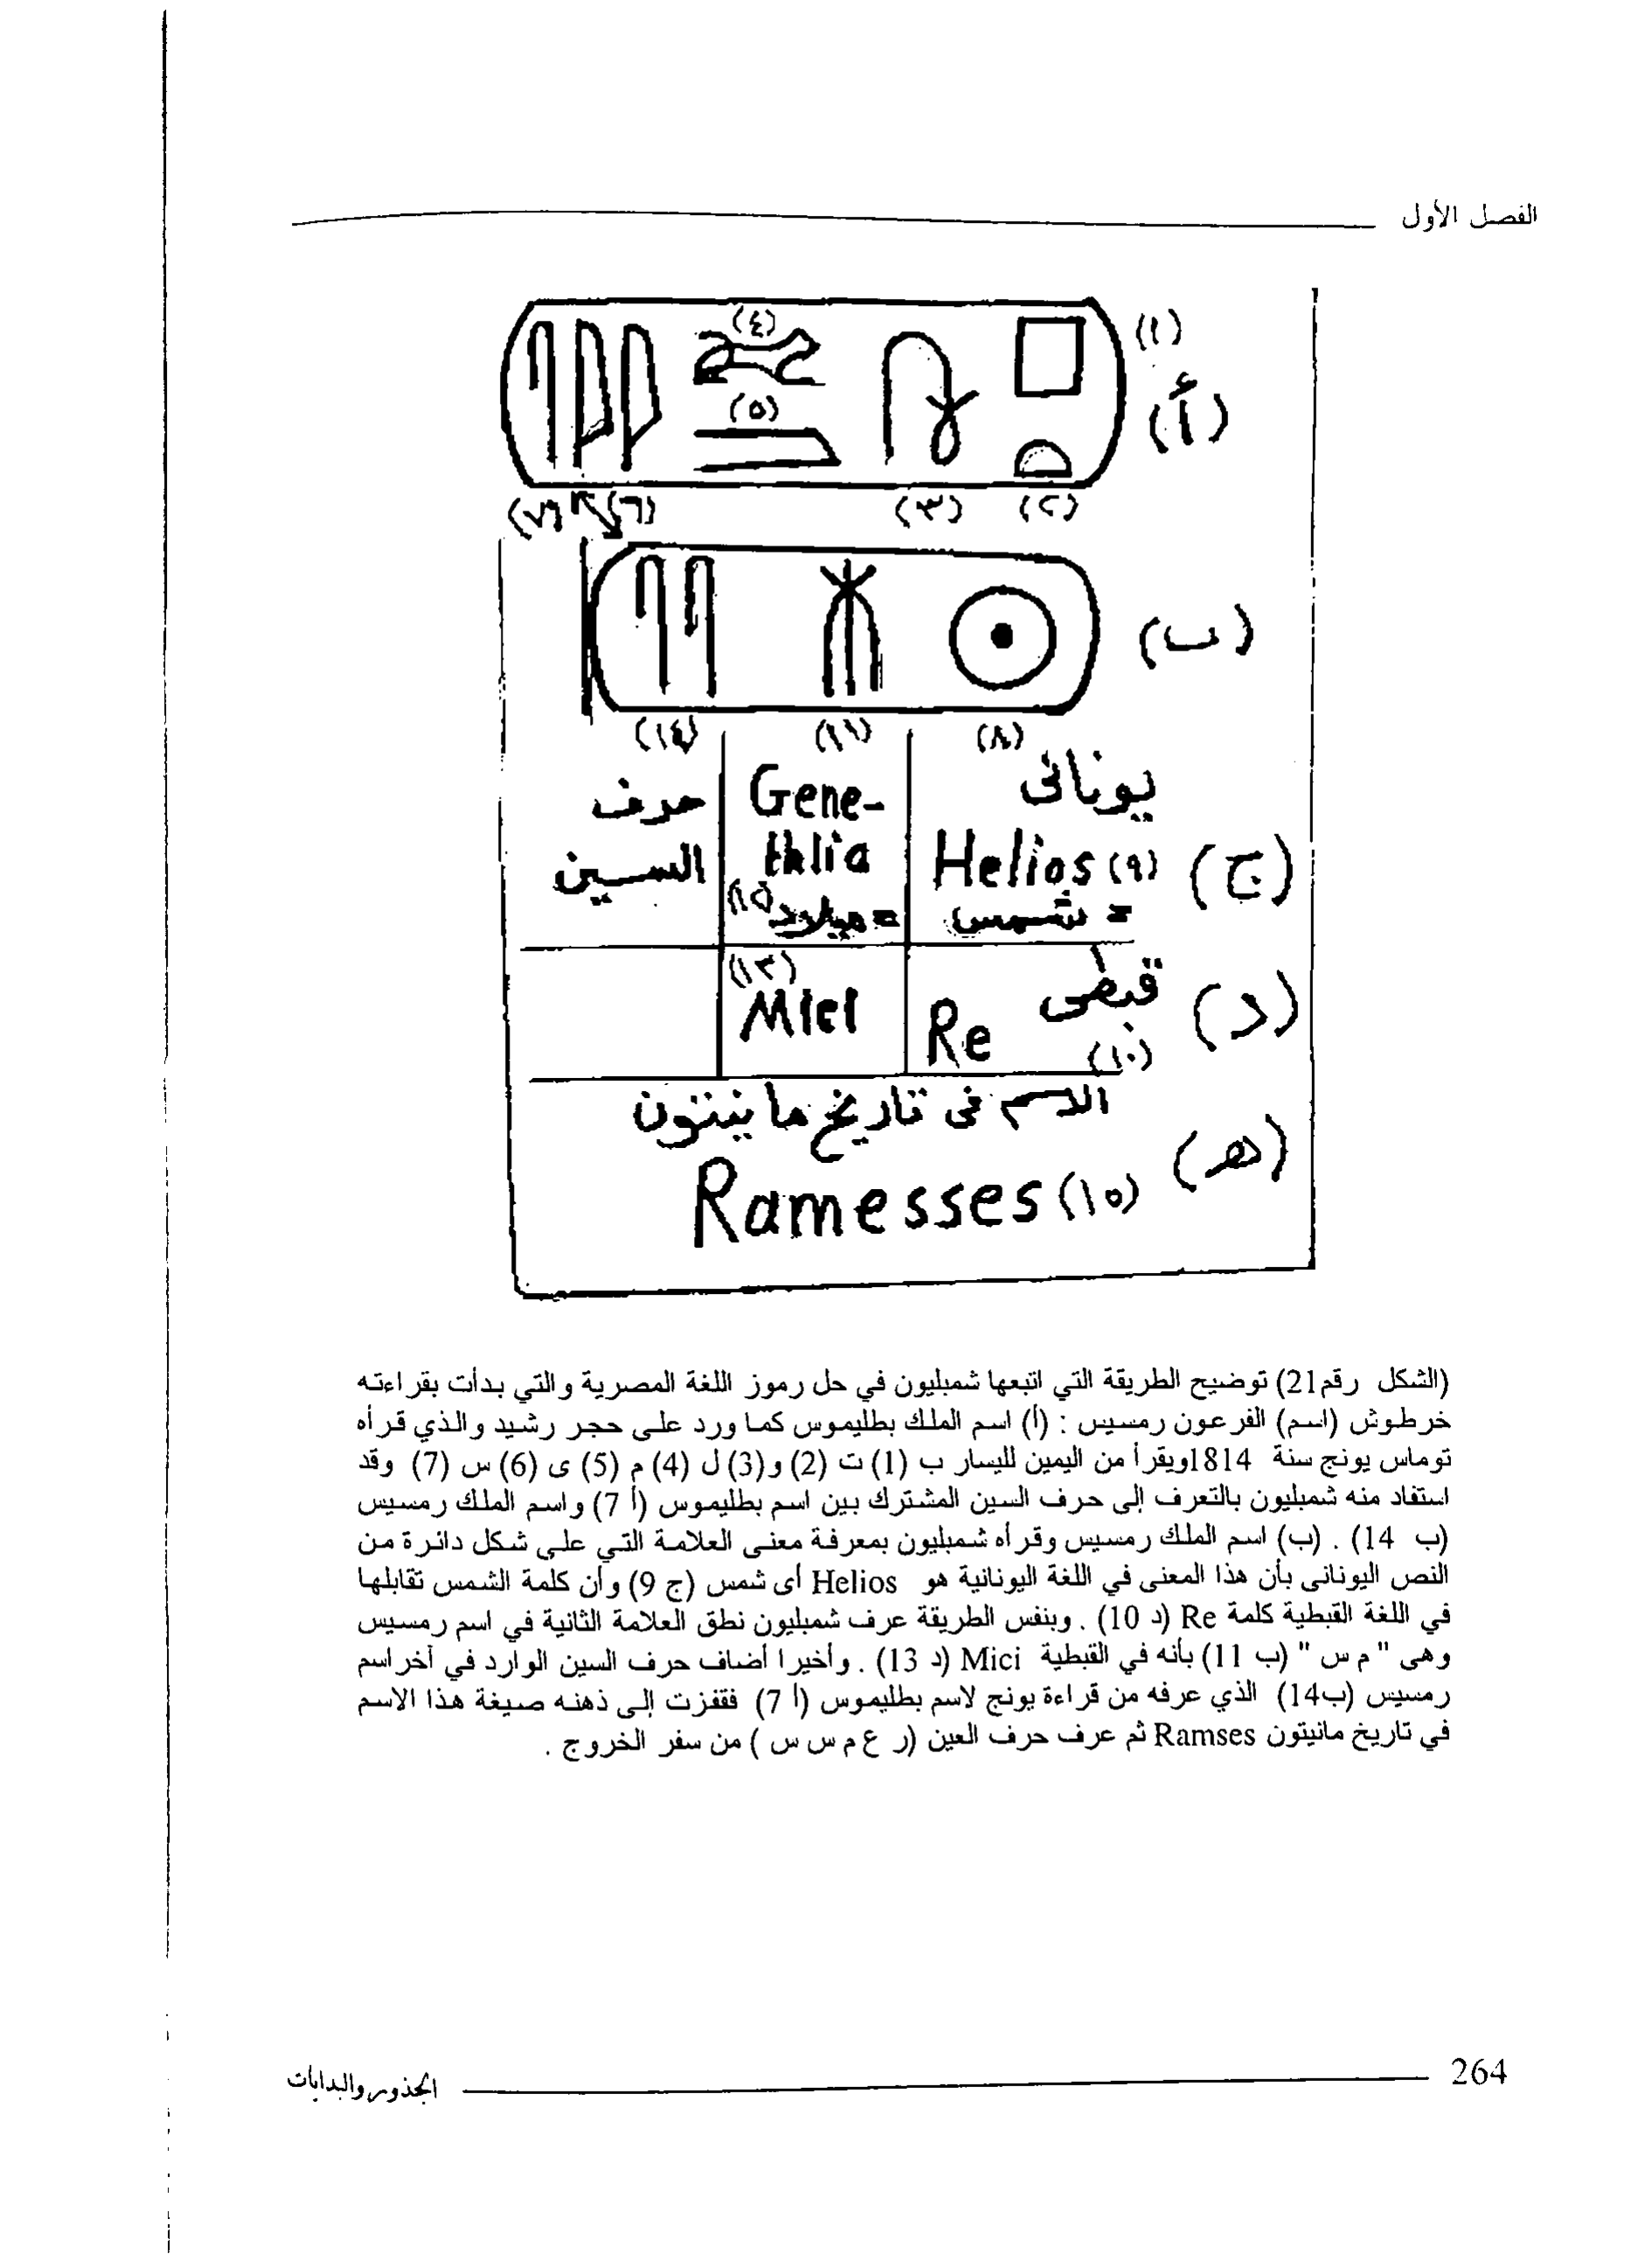 الفصل الأول
(١)
(٤)
(أ)
(٥)
(٢)
(٣)
(٦)
(٧)
(ب)
(٨)
(١١)
(١٤)
يونانى
Gene-
حرف
(ج)
Helios (٩)
thlia
السين
= شمس
= ميلاد
قبطى
(١٣)
(د)
Re
Mici
(١٠)
الاسم فى تاريخ مانيتون
(هـ)
Ramesses (١٥)
(الشكل رقم21) توضيح الطريقة التي اتبعها شمبليون في حل رموز اللغة المصرية والتي بدأت بقراءته
خرطوش (اسم) الفرعون رمسيس : (أ) اسم الملك بطليموس كما ورد على حجر رشيد والذي قرأه
توماس يونج سنة 1814 ويقرأ من اليمين لليسار ب (1) ت (2) و(3) ل (4) م (5) ى (6) س (7) وقد
استفاد منه شمبليون بالتعرف إلى حرف السين المشترك بين اسم بطليموس (أ 7) واسم الملك رمسيس
(ب 14) . (ب) اسم الملك رمسيس وقرأه شمبليون بمعرفة معنى العلامة التي على شكل دائرة من
النص اليونانى بأن هذا المعنى في اللغة اليونانية هو Helios أى شمس (ج 9) وأن كلمة الشمس تقابلها
في اللغة القبطية كلمة Re (د 10) . وبنفس الطريقة عرف شمبليون نطق العلامة الثانية في اسم رمسيس
وهى " م س " (ب 11) بأنه في القبطية Mici (د 13) . وأخيرا أضاف حرف السين الوارد في آخر اسم
رمسيس (ب14) الذي عرفه من قراءة يونج لاسم بطليموس (أ 7) فقفزت إلى ذهنه صيغة هذا الاسم
في تاريخ مانيتون Ramses ثم عرف حرف العين (ر ع م س س ) من سفر الخروج .
264
الجذور والبدايات